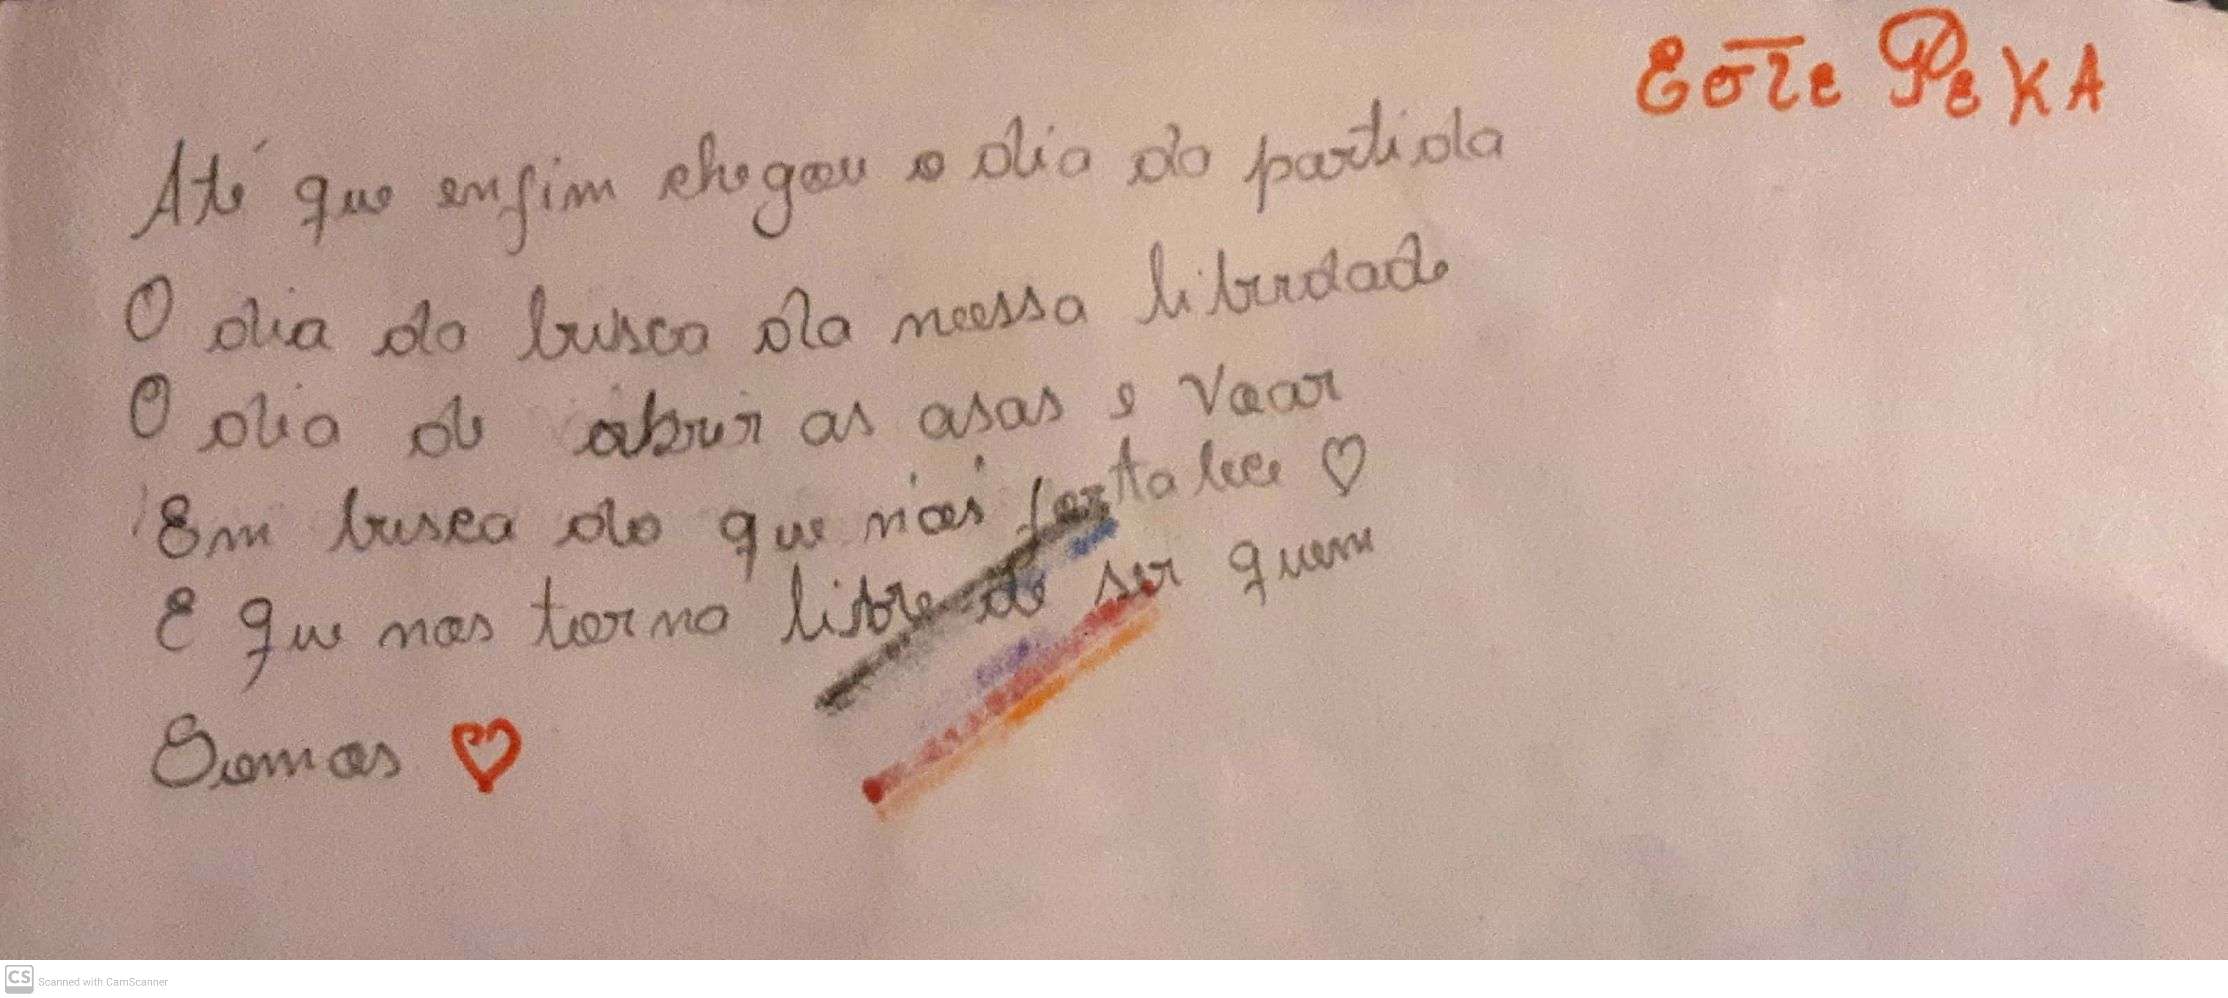 Até que enfim chegou o dia da partida
O dia da busca da nossa liberdade
O dia de abrir as asas e voar
Em busca do que nós fortalece ♡
E que nos torna livre de ser quem
Somos ♡
CS Scanned with CamScanner